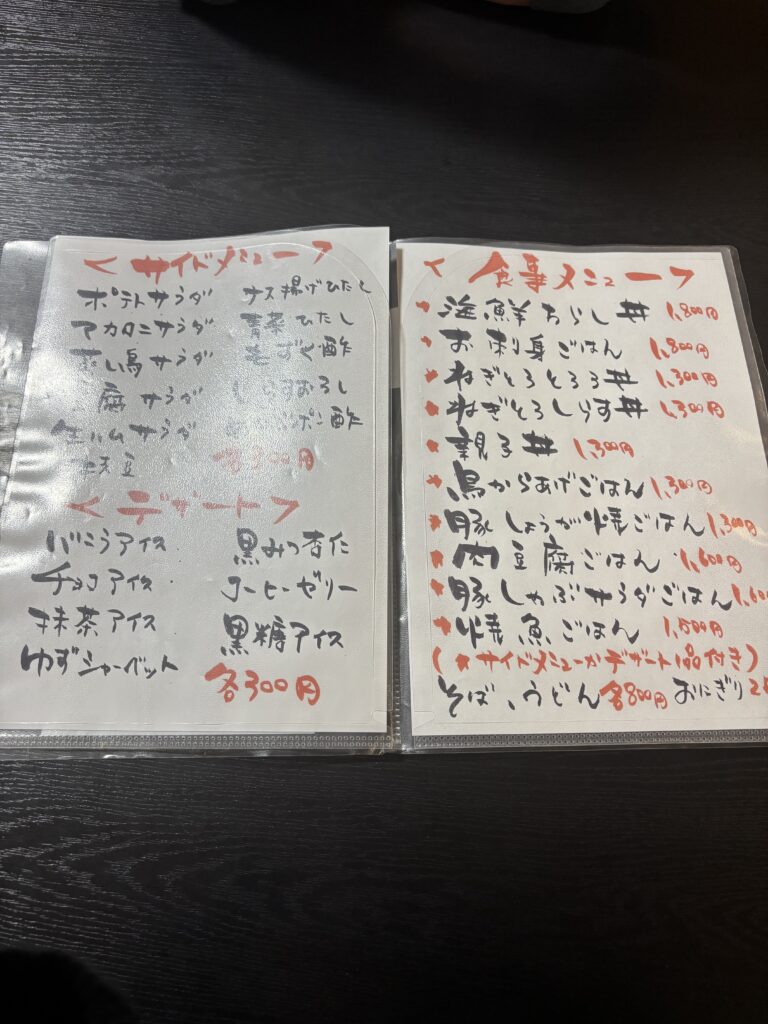 <サイドメニュー>
ポテトサラダ ナス揚げひたし
マカロニサラダ 青菜ひたし
蒸し鳥サラダ もずく酢
腐サラダ しらすおろし
生ハムサラダ ポン酢
枝豆 各300円
<デザート>
バニラアイス 黒みつ杏仁
チョコアイス コーヒーゼリー
抹茶アイス 黒糖アイス
ゆずシャーベット
各300円
<食事メニュー>
海鮮ちらし丼 1,800円
お刺身ごはん 1,800円
★ねぎとろとろろ丼 1,300円
★ねぎとろしらす丼 1,300円
★親子丼 1,300円
★鳥からあげごはん 1,300円
★豚しょうが焼ごはん 1,300円
★肉豆腐ごはん 1,600円
★豚しゃぶサラダごはん
★焼魚ごはん 1,800円
(★サイドメニューかデザート1品付き)
そば、うどん各800円 おにぎり